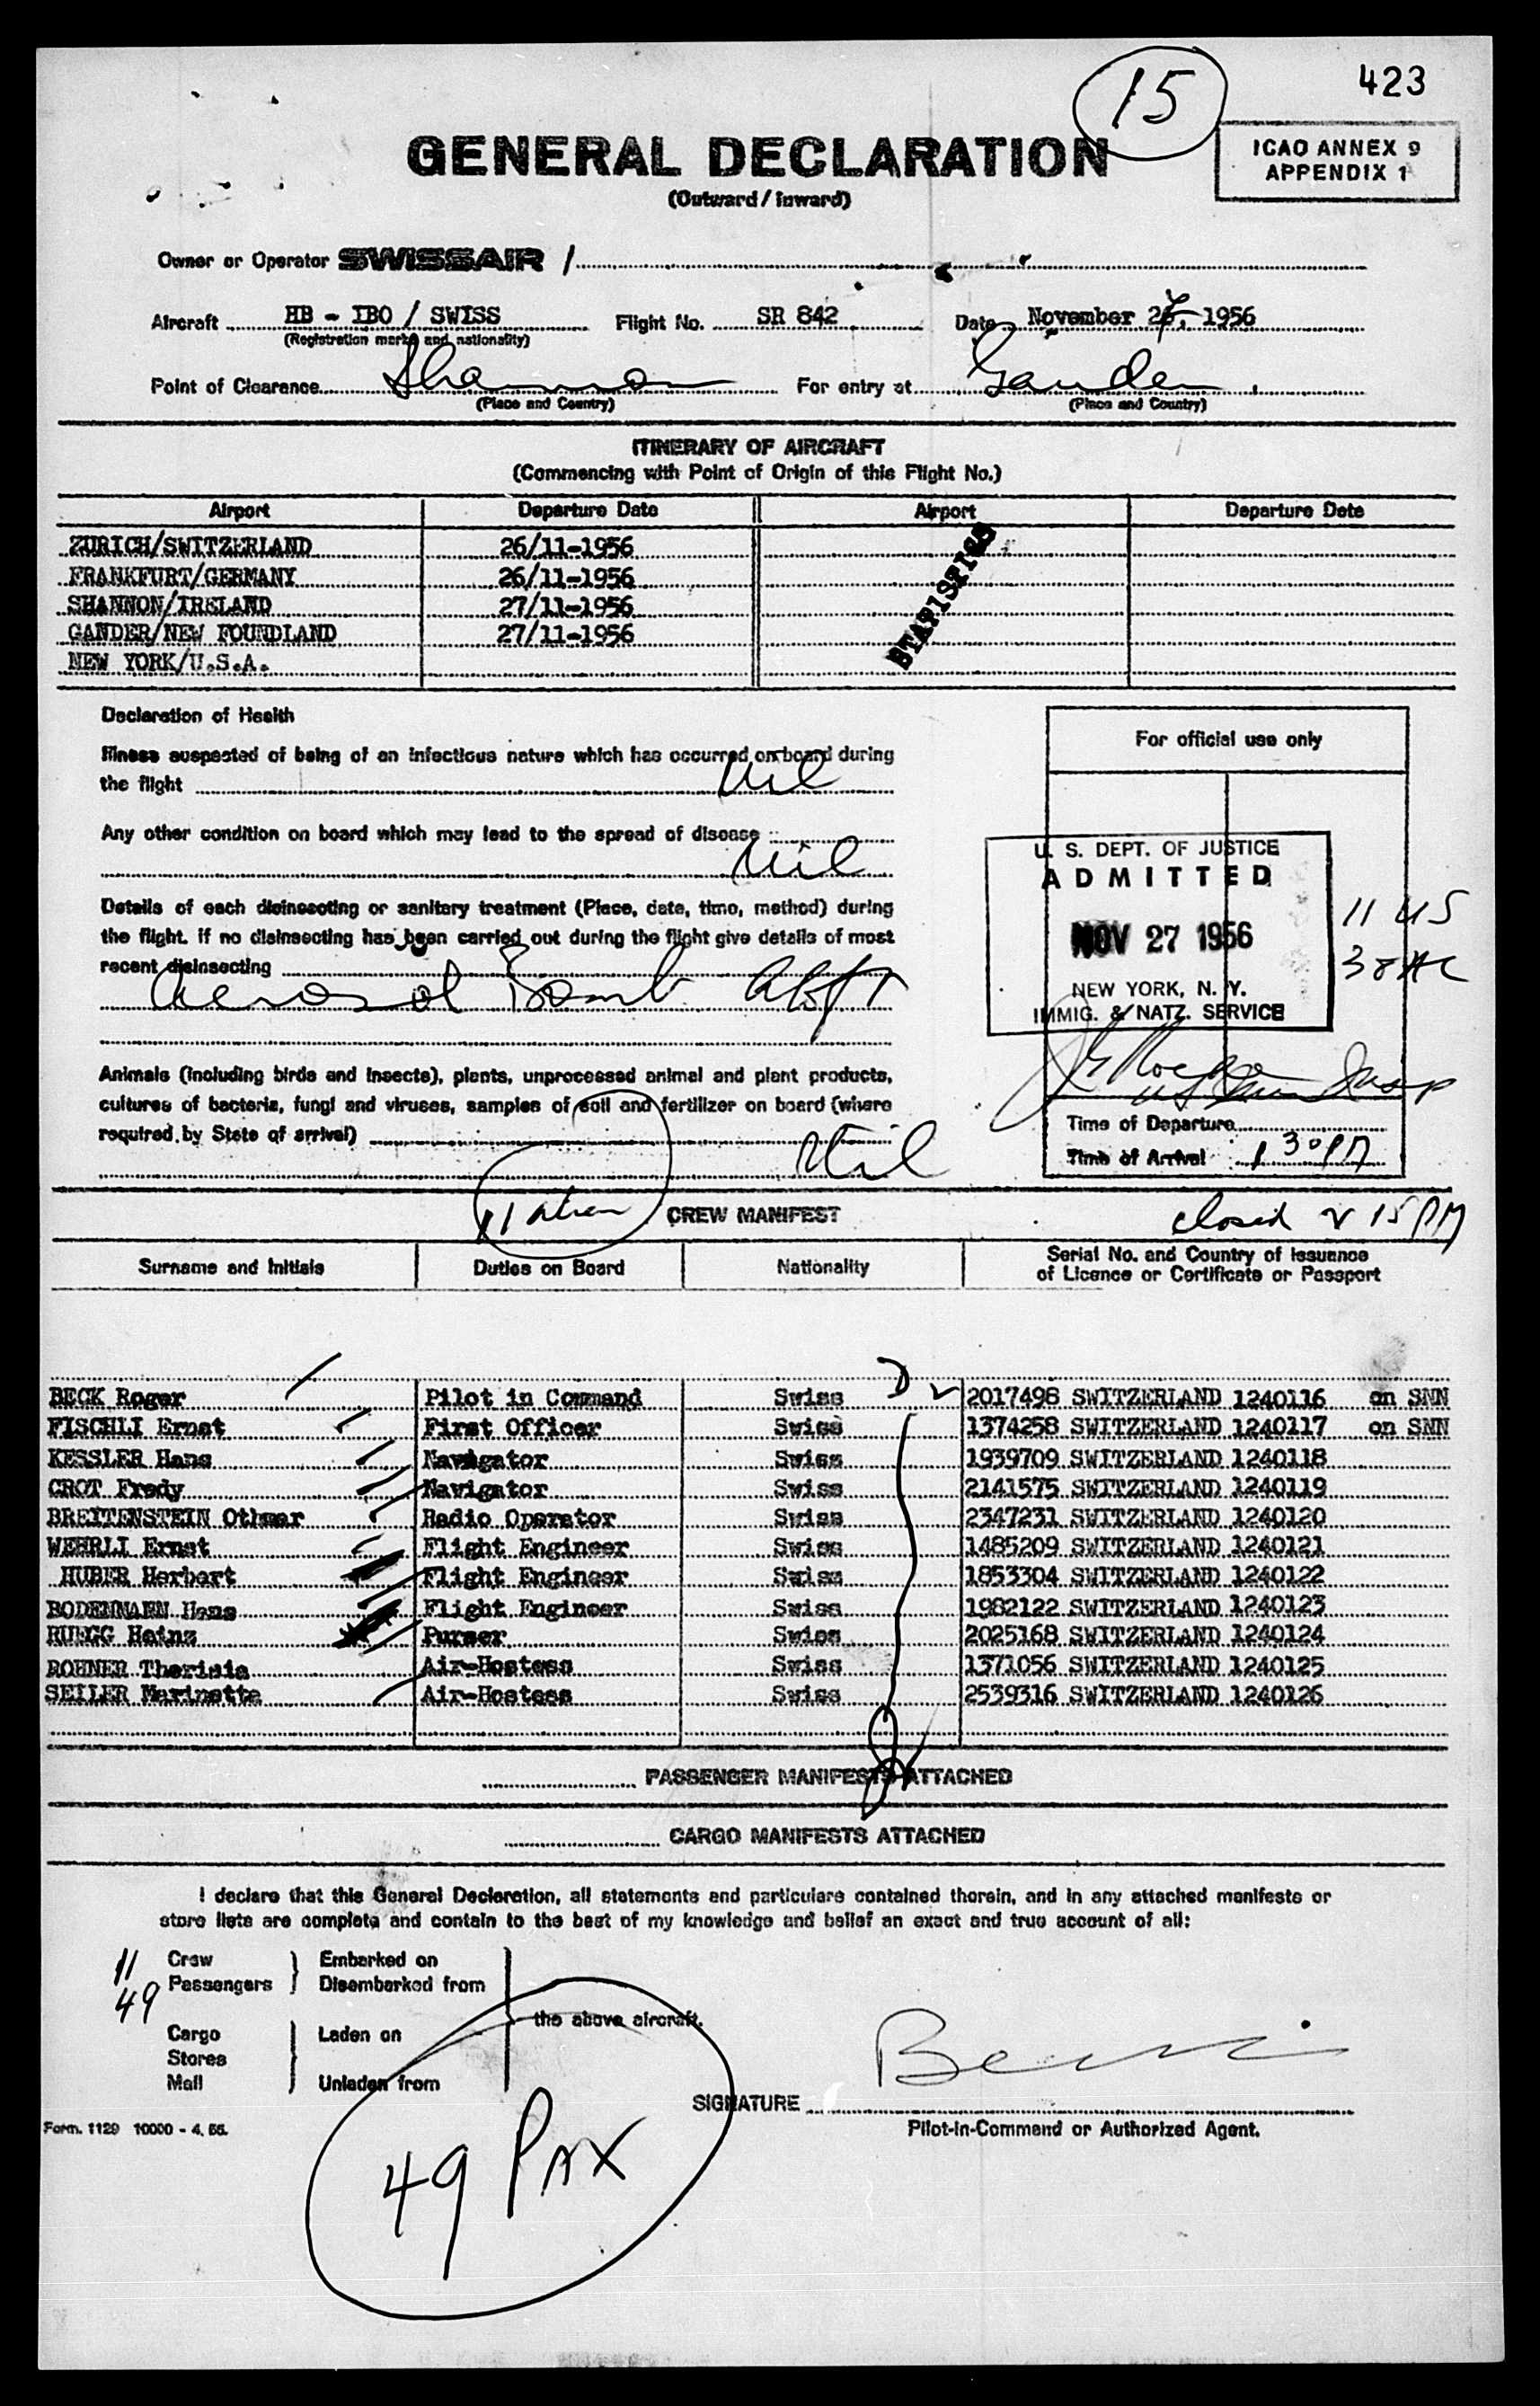 15
423
GENERAL DECLARATION
ICAO ANNEX 9
APPENDIX 1
(Outward / Inward)
Owner or Operator SWISSAIR /
Aircraft HB - IBO / SWISS Flight No. SR 842 Date November 27, 1956
(Registration marks and nationality)
Point of Clearance Shannon For entry at Gander
(Place and Country) (Place and Country)
ITINERARY OF AIRCRAFT
(Commencing with Point of Origin of this Flight No.)
Airport Departure Date Airport Departure Date
ZURICH/SWITZERLAND 26/11-1956
FRANKFURT/GERMANY 26/11-1956
SHANNON/IRELAND 27/11-1956
GANDER/NEW FOUNDLAND 27/11-1956
NEW YORK/U.S.A.
STATISTICS
Declaration of Health
Illness suspected of being of an infectious nature which has occurred on board during
the flight Nil
Any other condition on board which may lead to the spread of disease
Nil
Details of each disinsecting or sanitary treatment (Place, date, time, method) during
the flight. If no disinsecting has been carried out during the flight give details of most
recent disinsecting
Aerosol Bomb
Animals (including birds and insects), plants, unprocessed animal and plant products,
cultures of bacteria, fungi and viruses, samples of soil and fertilizer on board (where
required by State of arrival)
Nil
For official use only
U. S. DEPT. OF JUSTICE
ADMITTED
NOV 27 1956
NEW YORK, N. Y.
IMMIG. & NATZ. SERVICE
11 US
38
Time of Departure
Time of Arrival 1 30 PM
11 CREW MANIFEST closed 2 15 PM
Surname and Initials Duties on Board Nationality Serial No. and Country of Issuance
of Licence or Certificate or Passport
BECK Roger Pilot in Command Swiss 2017498 SWITZERLAND 1240116 on SNN
FISCHLI Ernst First Officer Swiss 1374258 SWITZERLAND 1240117 on SNN
KESSLER Hans Navigator Swiss 1939709 SWITZERLAND 1240118
CROT Fredy Navigator Swiss 2141575 SWITZERLAND 1240119
BREITENSTEIN Othmar Radio Operator Swiss 2347231 SWITZERLAND 1240120
WEHRLI Ernst Flight Engineer Swiss 1485209 SWITZERLAND 1240121
HUBER Herbert Flight Engineer Swiss 1853304 SWITZERLAND 1240122
BODENMANN Hans Flight Engineer Swiss 1982122 SWITZERLAND 1240123
RUEGG Heinz Purser Swiss 2025168 SWITZERLAND 1240124
ROHNER Therisia Air-Hostess Swiss 1371056 SWITZERLAND 1240125
SEILER Marinette Air-Hostess Swiss 2539316 SWITZERLAND 1240126
PASSENGER MANIFESTS ATTACHED
CARGO MANIFESTS ATTACHED
I declare that this General Declaration, all statements and particulars contained therein, and in any attached manifests or
store lists are complete and contain to the best of my knowledge and belief an exact and true account of all:
11 Crew Embarked on
49 Passengers Disembarked from
the above aircraft.
Cargo Laden on
Stores
Mail Unladen from
SIGNATURE
Pilot-in-Command or Authorized Agent.
Form. 1129 10000 - 4. 56.
49 PAX